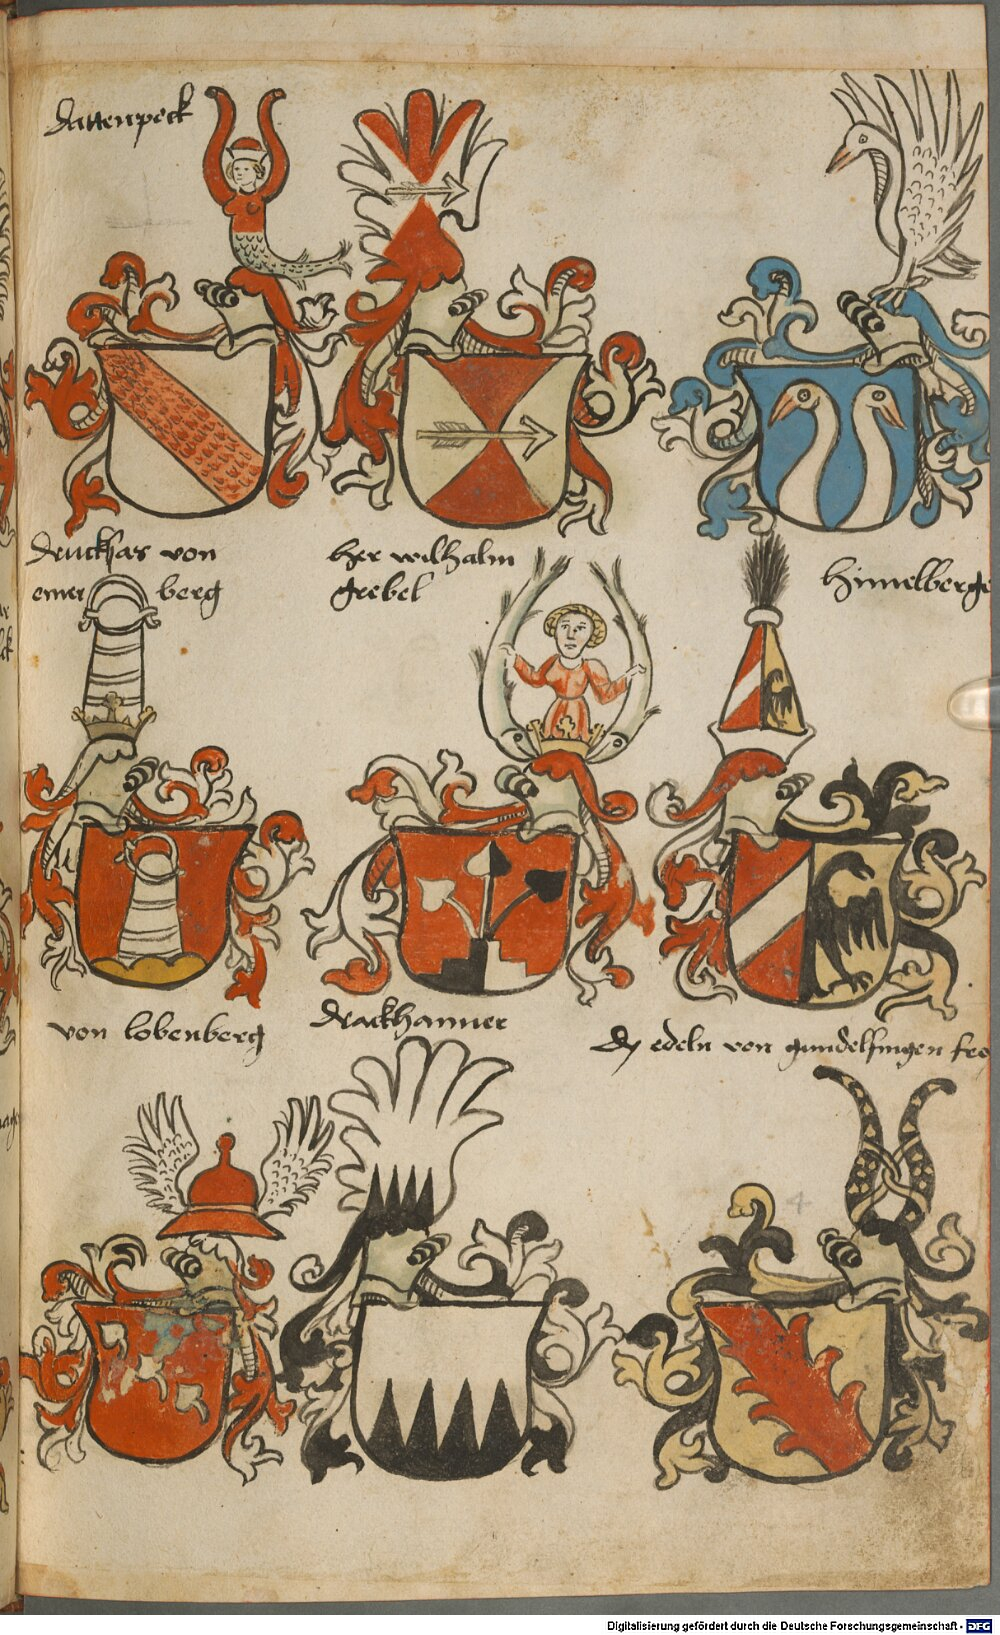 Dattenpeck
Drucksas von
emer berg
her wilhalm
grebel
himelberge
von lobenberg
Drackhanner
Dy edeln von gundelfingen
4
Digitalisierung gefördert durch die Deutsche Forschungsgemeinschaft - DFG